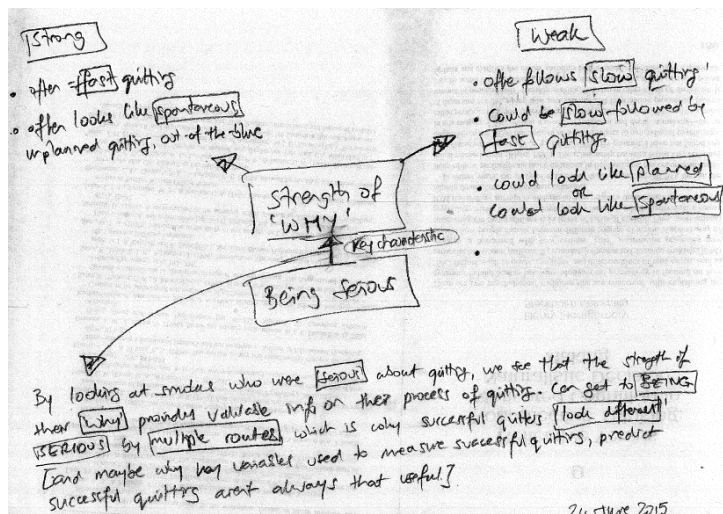 Strong
• often = fast quitting
• often looks like spontaneous
unplanned quitting, out of the blue
Weak
• ofte follows 'slow quitting'
• could be slow followed by
fast quitting
• could look like planned
OR
could look like spontaneous
•
Strength of
'WHY'
Key characteristic
Being serious
By looking at smokers who were serious about quitting, we see that the strength of
their 'why' provides valuable info on their process of quitting. Can get to BEING
SERIOUS by multiple routes, which is why successful quitters 'look different'
[and maybe why key variables used to measure successful quitting, predict
successful quitting aren't always that useful].
24 June 2015